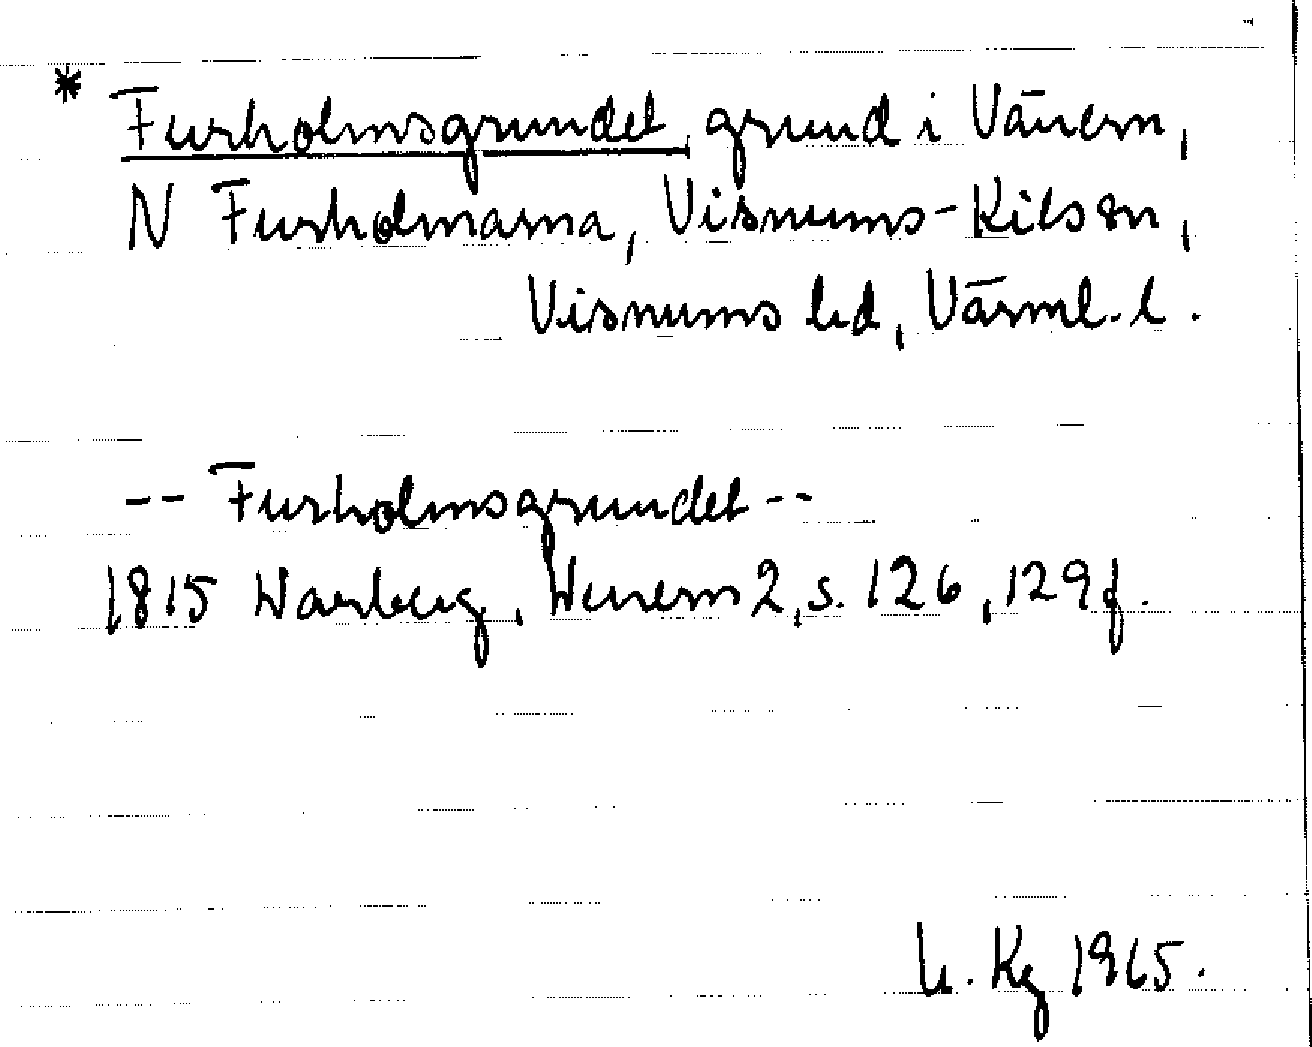 * Furholmsgrundet, grund i Vänern,
N Furholmarna, Visnums-Kils sn,
Visnums hd, Värml. l.
-- Furholmsgrundet --
1815 Warberg, Wenern 2, s. 126, 129 f.
Kg 1965.